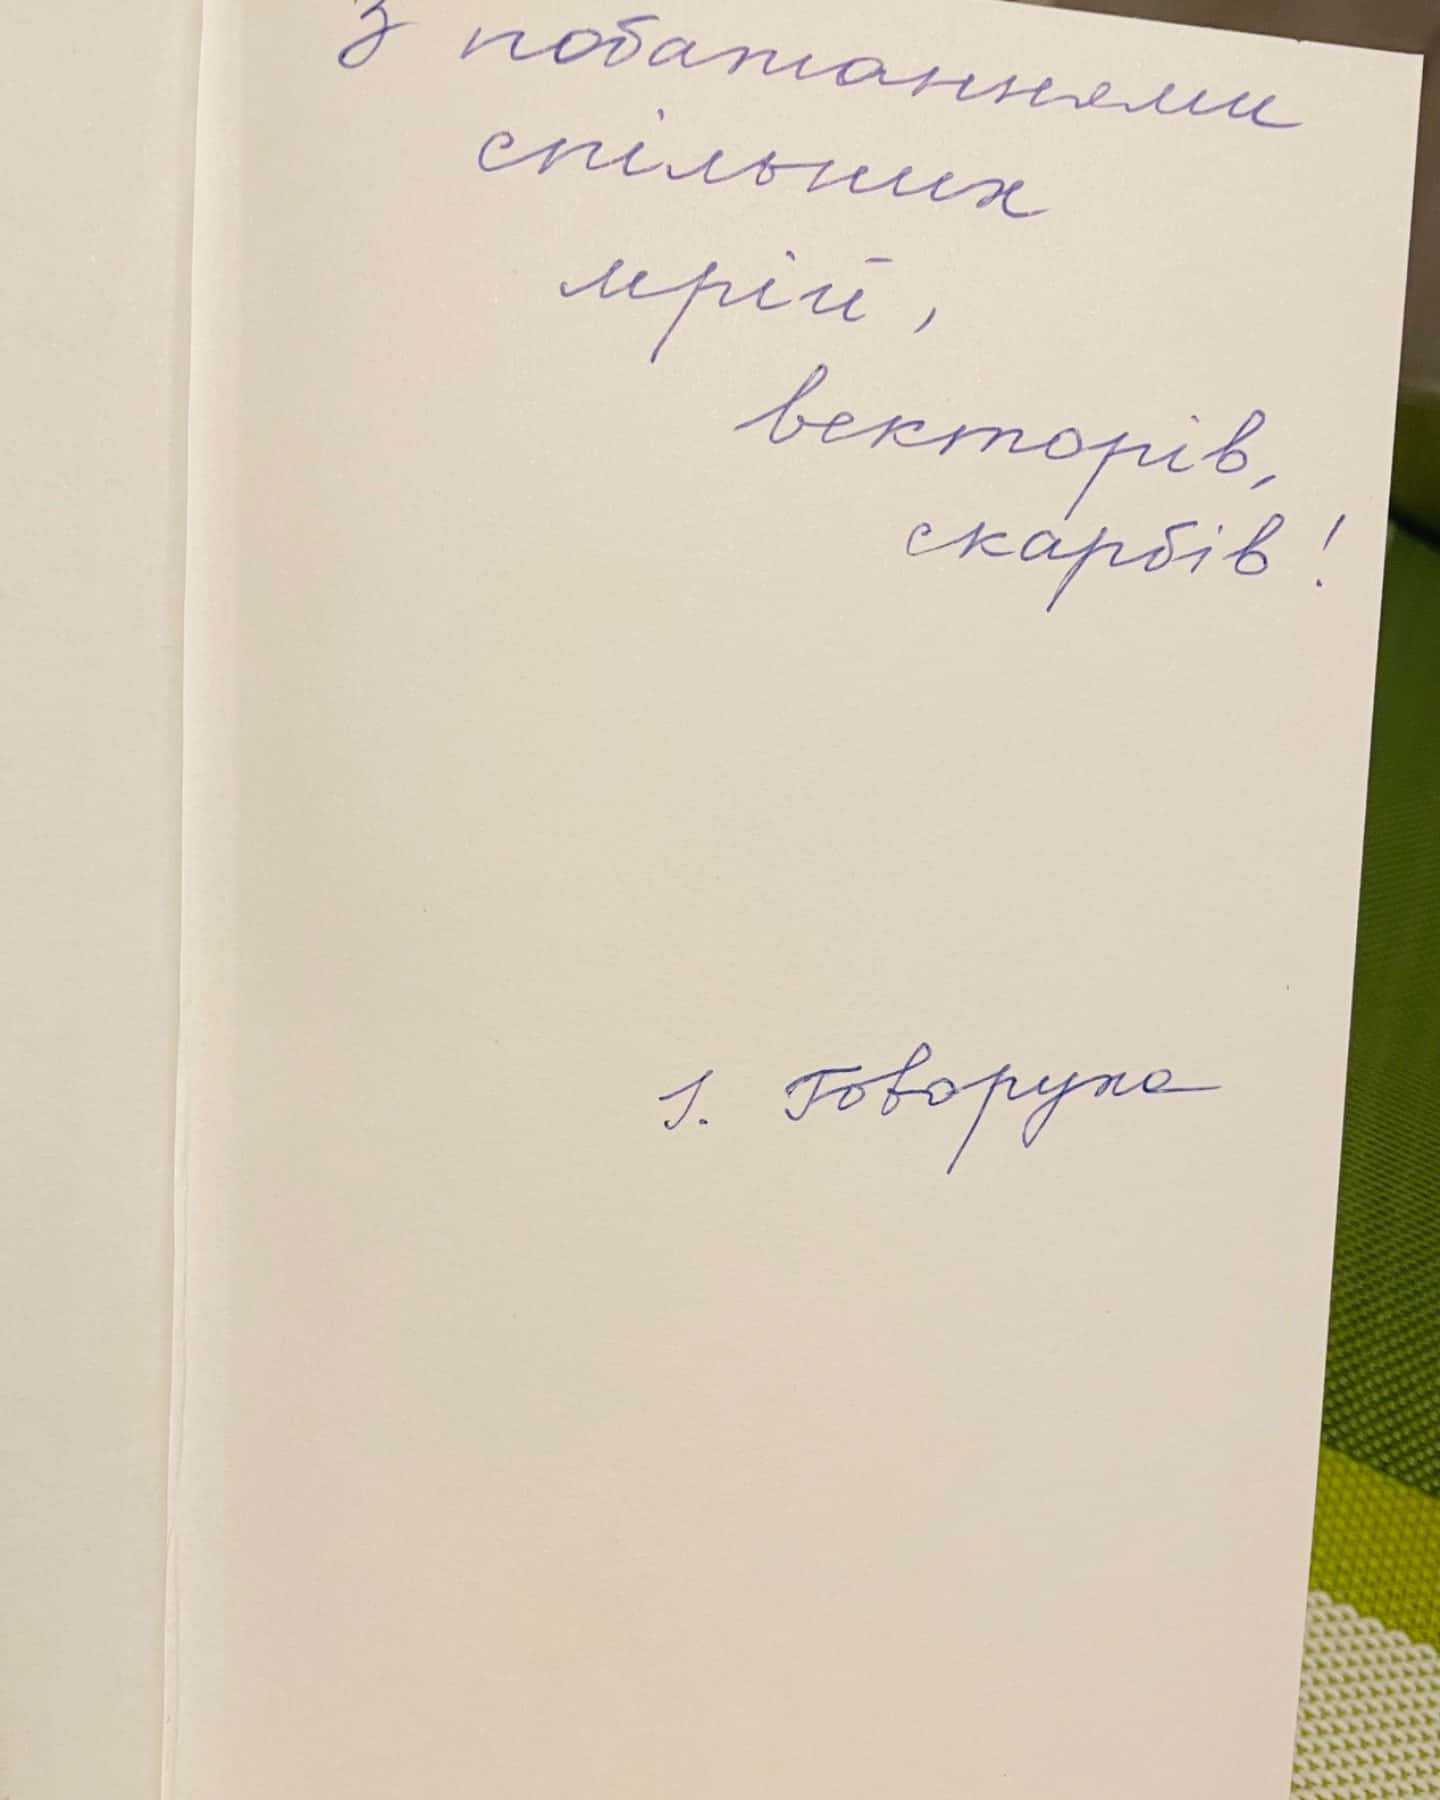 З побажаннями
спільних
мрій,
векторів,
скарбів!
І. Говоруха